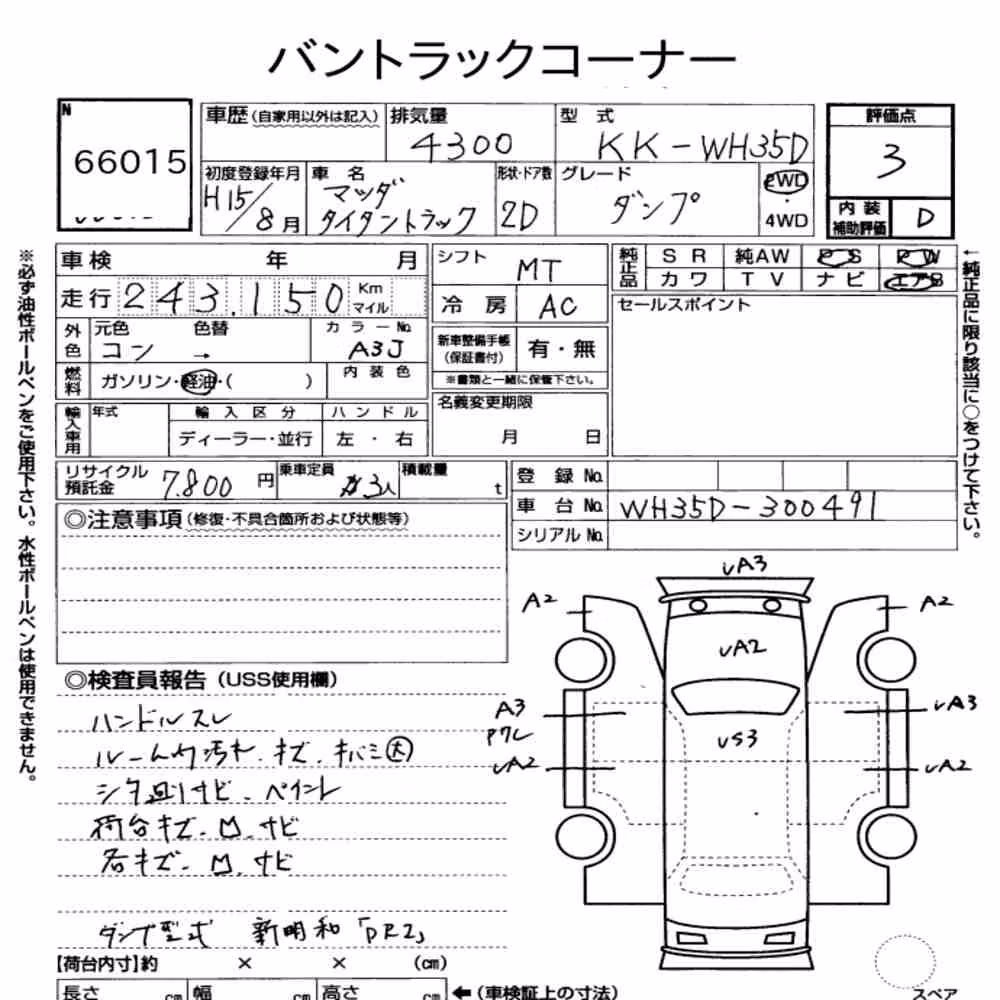 バントラックコーナー
N
66015
車歴(自家用以外は記入)
排気量
4300
型 式
KK-WH35D
評価点
3
初度登録年月
H15/8月
車 名
マツダ
タイタントラック
形状・ドア数
2D
グレード
ダンプ
2WD
・
4WD
内 装
補助評価
D
※必ず油性ボールペンをご使用下さい。水性ボールペンは使用できません。
車検 年 月
シフト
MT
純正品
SR 純AW PS PW
カワ TV ナビ エアB
←純正品に限り該当に○をつけて下さい。
走行 243,150 Km マイル
冷房
AC
セールスポイント
外色
元色 色替
コン →
カラーNo.
A3J
新車整備手帳
(保証書付)
有・無
※書類と一緒に保管下さい。
燃料
ガソリン・軽油・( )
内装色
名義変更期限
月 日
輸入車用
年式
輸入区分
ディーラー・並行
ハンドル
左・右
リサイクル
預託金
7,800円
乗車定員
3人
積載量
t
登録No.
車台No.
WH35D-300491
シリアルNo.
◎注意事項(修復・不具合箇所および状態等)
◎検査員報告(USS使用欄)
ハンドルスレ
ルーム内汚れ.キズ.キバミ大
シタ廻りサビ.ペイント
荷台キズ.凹.サビ
各キズ.凹.サビ
ダンプ型式 新明和「DR2」
【荷台内寸】約 × × (cm)
長さ cm 幅 cm 高さ cm ←(車検証上の寸法)
UA3
A2
A2
UA2
A3
UA3
US3
UA2
UA2
スペア